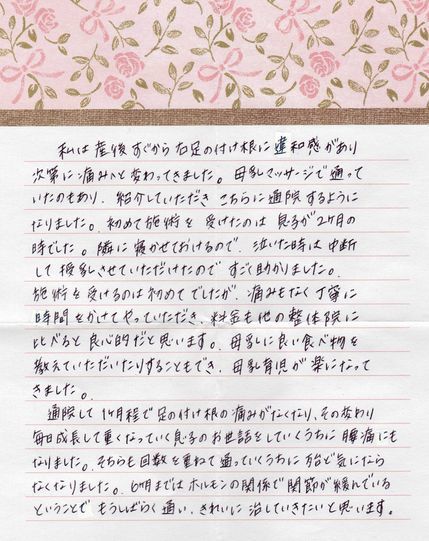 私は産後すぐから右足の付け根に違和感があり
次第に痛みへと変わってきました。母乳マッサージで通って
いたのもあり、紹介していただきこちらに通院するように
なりました。初めて施術を受けたのは息子が2ヶ月の
時でした。隣に寝かせておけるので、泣いた時は中断
して授乳させていただけたのですごく助かりました。
施術を受けるのは初めてでしたが、痛みもなく丁寧に
時間をかけてやっていただき、料金も他の整体院に
比べると良心的だと思います。母乳に良い食べ物を
教えていただいたりすることもでき、母乳育児が楽になって
きました。
通院して1ヶ月程で足の付け根の痛みがなくなり、その変わり
毎日成長して重くなっていく息子のお世話をしていくうちに腰痛にも
なりました。そちらも回数を重ねて通っていくうちに殆ど気になら
なくなりました。6ヶ月まではホルモンの関係で関節が緩んでいる
ということで もうしばらく通い、きれいに治していきたいと思います。